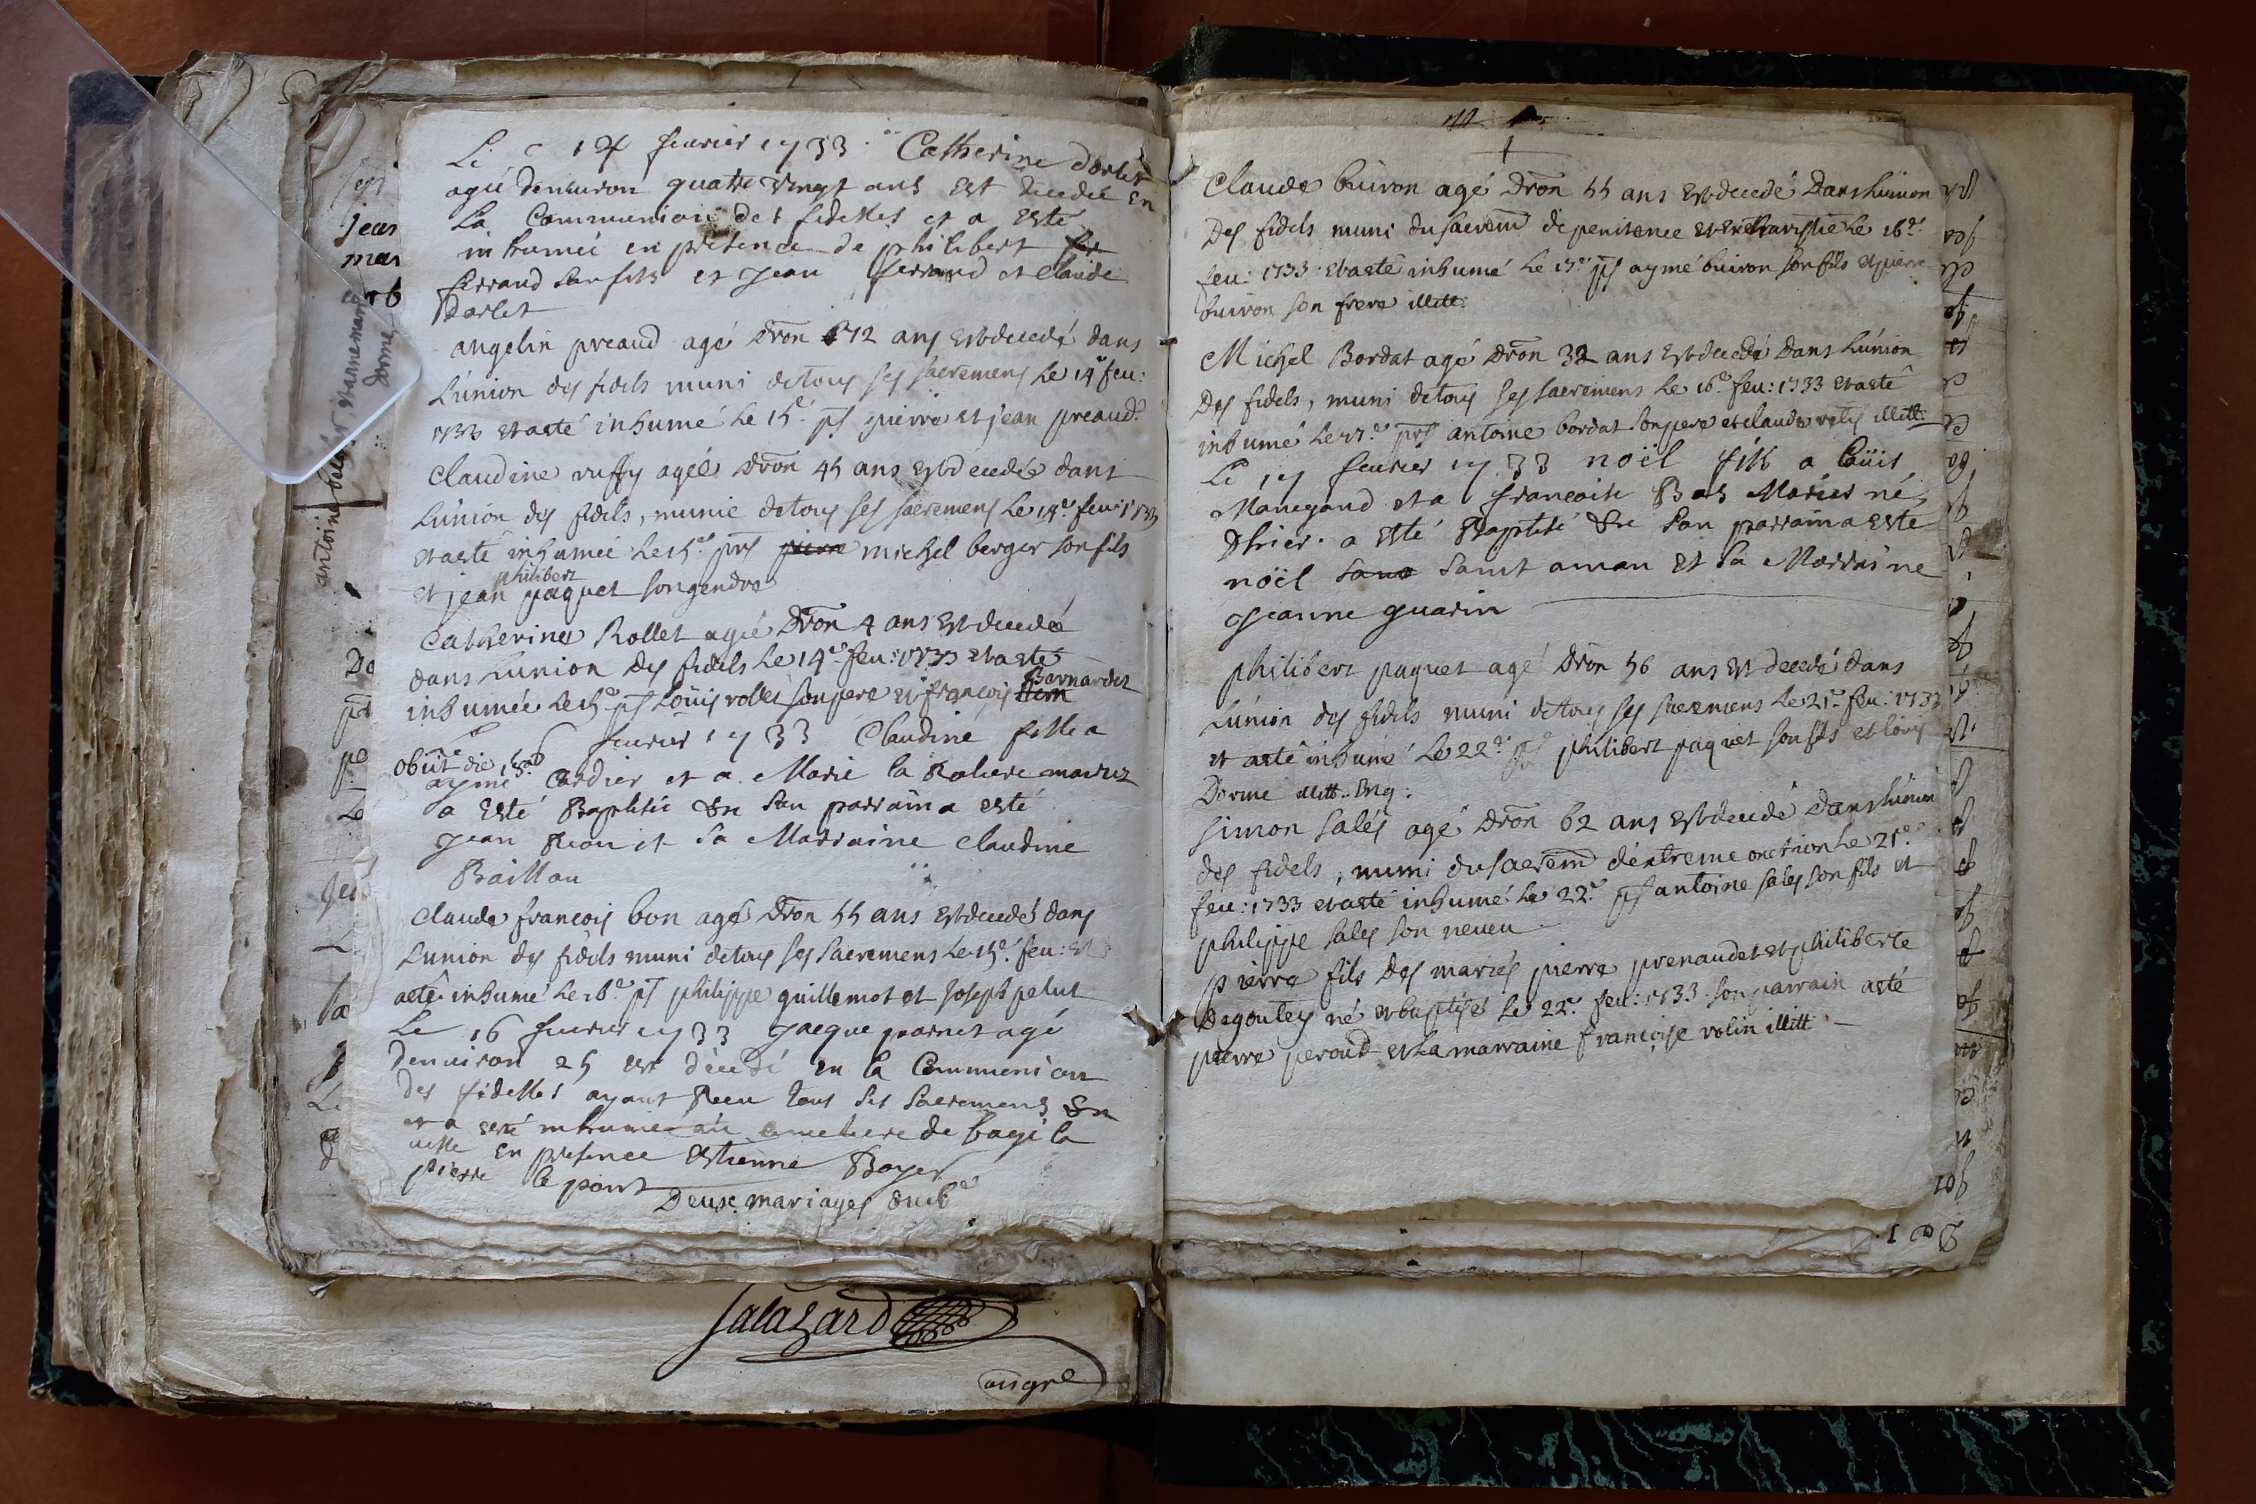 Le 14 feurier 1733 Catherine dorlet
agée denuiron quatre vingt ans est decedée en
La Communion des fidelles et a esté
inhumée en presence de philibert fer
ferrand son fils et jean ferrand et claude
dorlet
angelin preaud agé dron 72 ans est decedé dans
L'union des fidels muni de tous ses sacremens Le 14e feu:
1733 et a eté inhumé Le 15e pst pierre et jean preaud
claudine ruffy agée dron 45 ans est decedée dans
L'union des fidels, munie de tous ses sacremens Le 14e feu: 1733
et a eté inhumée Le 15e pnt pierre michel berger son fils
philibert
et jean paquet son gendre
Catherine Rollet agée dron 4 ans est decedée
dans L'union des fidels Le 14e feu: 1733 et a eté
Bernardet
inhumée Le 15e pst Loüis rollet son pere et françois bern
feurier 1733 Claudine fille a
obiit die
aymé Cordier et a Marie la Roliere mariez
a esté Baptisée Son parrain a esté
jean et Sa Marraine claudine
Baillau
claude françois bon agé dron 55 ans est decedé dans
L'union des fidels muni de tous ses sacremens Le 15e feu: et
a eté inhumé Le 16e pst philippe guillemot et joseph pelut
Le 16 feurier 1733 jacque parret agé
denuiron 25 est décedé en la Communion
des fidelles ayant Receu tous ses sacremens
et a esté inhumé au cimetiere de bagé la
uille en presence estienne Boyer
pierre le pont
Deux mariages du 16e
salazard
antoine
Claude buiron agé dron 55 ans est decedé Dans L'union
Des fidels muni du sacrem de penitence et Le 16e
feu: 1733 et a eté inhumé Le 17e pst aymé buiron son fils et pierre
buiron son frere illitt:
Michel Bordat agé dron 32 ans est decedé Dans L'union
Des fidels, muni de tous ses sacremens Le 16e feu: 1733 et a eté
inhumé Le 17e pnt antoine bordat son pere et claude illitt:
Le 17 feurier 1733 noël fils a Loüis
Manegand et a françoise Bas Mariés né
d'hier a esté Baptisé Son parrain a esté
noël sane saint aman et Sa Marraine
jeanne guarin
philibert paquet agé dron 56 ans est decedé dans
L'union des fidels muni de tous ses sacremens Le 21e feu: 1733
et a eté inhumé Le 22e pst philibert paquet son fils et Loüis
Dorme illitt.
simon sales agé dron 62 ans est decedé Dans L'union
des fidels, muni du sacrem d'extreme onction Le 21e
feu: 1733 et a eté inhumé Le 22e pst antoine sales son fils et
philippe sales son neveu
pierre fils Des mariés pierre prenaudet et philiberte
Degoutey né et baptisé Le 22e feu: 1733 son parrain a eté
pierre peroud et La marraine françoise rolin illitt